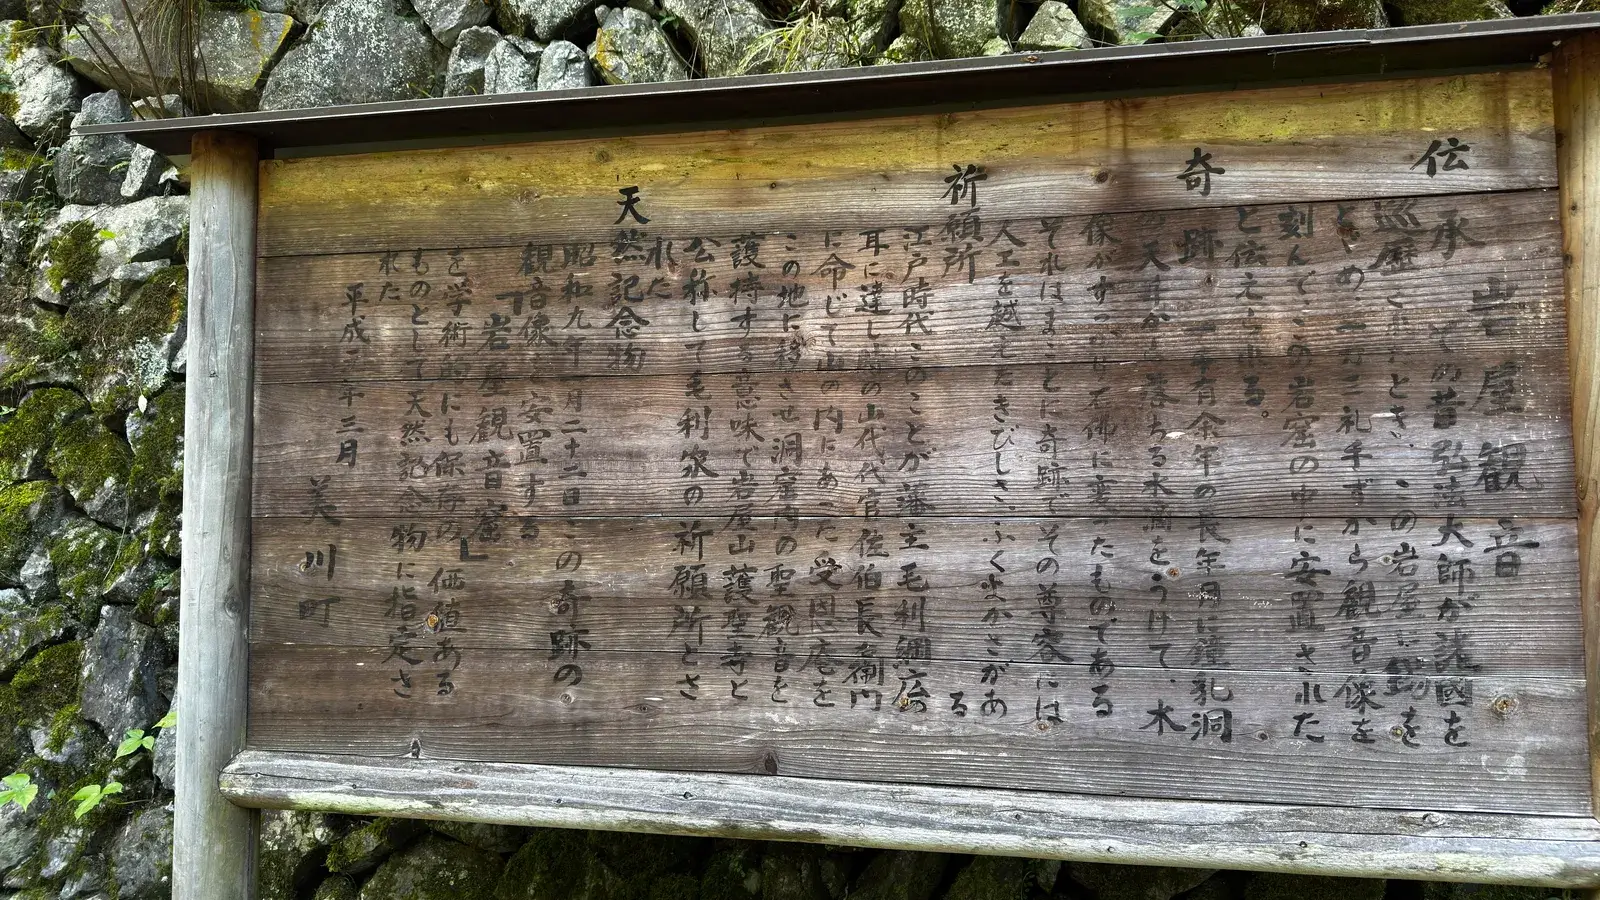 岩屋観音
伝承
その昔弘法大師が諸國を
巡歴されたとき、この岩屋に錫を
とめ一刀三礼手ずから観音像を
刻んでこの岩窟の中に安置された
と伝えられる。
奇跡
千有余年の長年月に鐘乳洞
の天井から落ちる水滴をうけて、木
像がすっかり石佛に変ったものである
それはまことに奇跡でその尊容には
人工を越えたきびしさ、ふくよかさがあ
る
祈願所
江戸時代このことが藩主毛利綱広の
耳に達し時の山代代官佐伯長左衛門
に命じて山の内にあった受恩庵を
この地に移させ洞窟内の聖観音を
護持する意味で岩屋山護聖寺と
公称して毛利家の祈願所とさ
れた
天然記念物
昭和九年一月二十二日この奇跡の
観音像を安置する
「岩屋観音窟」
を学術的にも保存の価値ある
ものとして天然記念物に指定さ
れた
平成二年三月
美川町